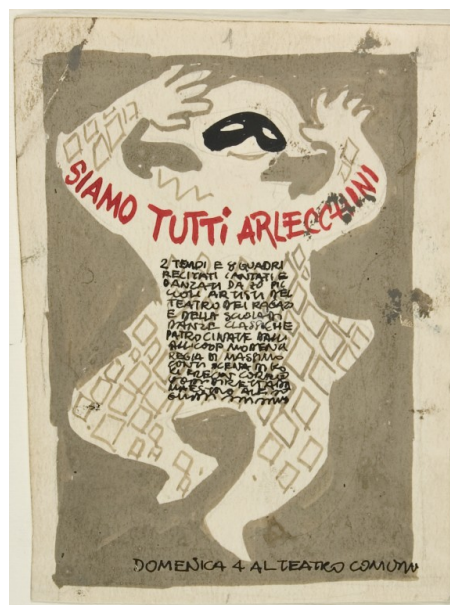 SIAMO TUTTI ARLECCHINI
2 TEMPI E 8 QUADRI
RECITATI CANTATI E
DANZATI DA 70 PIC
COLI ARTISTI DEL
TEATRO DEI RAGAZ
E DELLA SCUOLA DI
DANZE CLASSICHE
PATROCINATE DALL
ALLCOOP MODENA
REGIA DI MASSIMO
CONTI SCENA DI
DOMENICA 4 AL TEATRO COMUN